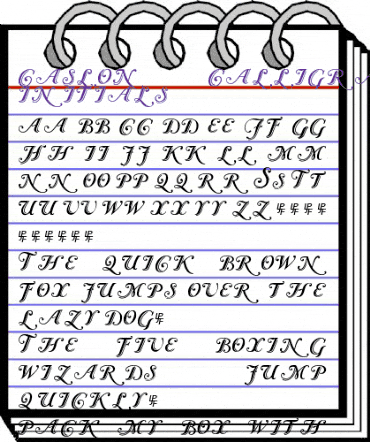 CASLON CALLIGRA
INITIALS
AA BB CC DD EE FF GG
HH II JJ KK LL MM
NN OO PP QQ RR SS TT
UU VV WW XX YY ZZ
THE QUICK BROWN
FOX JUMPS OVER THE
LAZY DOG
THE FIVE BOXING
WIZARDS JUMP
QUICKLY
PACK MY BOX WITH